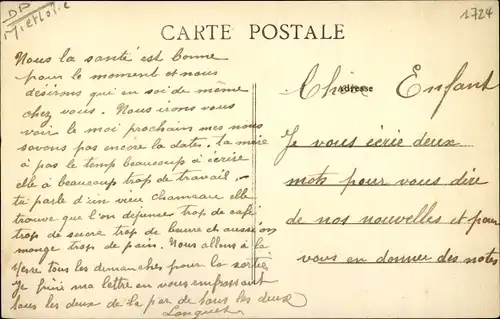 DP
1724
CARTE POSTALE
Adresse
Chère Enfant
Je vous écrie deux
mots pour vous dire
de nos nouvelles et pour
vous en donner des notes
Nous la santé est bonne
pour le moment et nous
désirons qui en soi de même
chez vous. Nous irons vous
voir le moi prochain mes nous
savons pas encore la date. ta mère
à pas le temp beaucoup à écrire
elle à beaucoup trop de travail
tu parle d'un vieu chameare elle
trouve que l'on dépenses trop de café
trop de sucre trop de beurre et aussi on
mange trop de pain. Nous allons à la
tous les dimanches pour la sortie
Je finis ma lettre en vous embrassant
tous les deux de la par de tous les deux